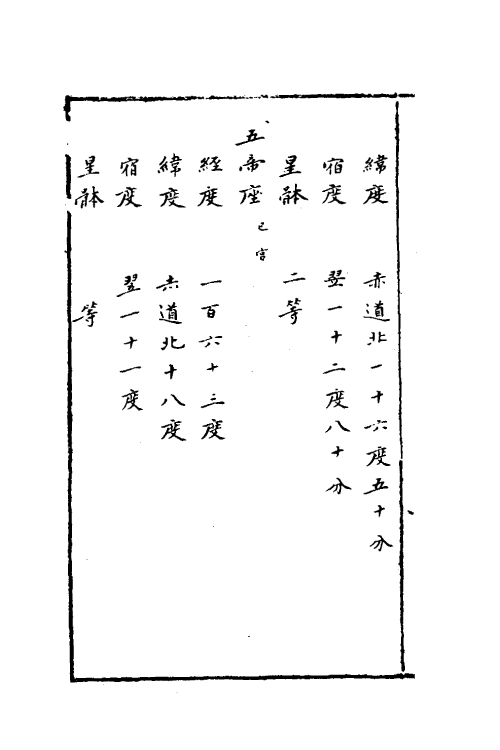 緯度　赤道北一十六度五十分
宿度　翌一十二度八十分
星體　二等
五帝座　巳宮
經度　一百六十三度
緯度　赤道北十八度
宿度　翌一十一度
星體　等